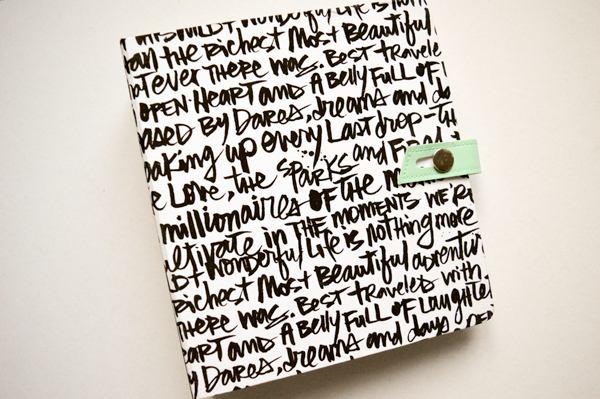 WILD & WONDERFUL, LIFE IS NOTH
THAN THE RICHEST MOST BEAUTIFUL
ATEVER THERE WAS. BEST TRAVELE
OPEN HEART AND A BELLY FULL OF
ASED BY DARES, DREAMS AND DA
OAKING UP EVERY LAST DROP-TH
E LOVE, THE SPARKS AND
MILLIONAIRES OF THE
ULTIVATE IN THE MOMENTS WE'RE
WONDERFUL, LIFE IS NOTHING MORE
RICHEST MOST BEAUTIFUL ADVENTUR
THERE WAS. BEST TRAVELED WITH
EART AND A BELLY FULL OF LAUGHTE
Y DARES, DREAMS AND DAYS